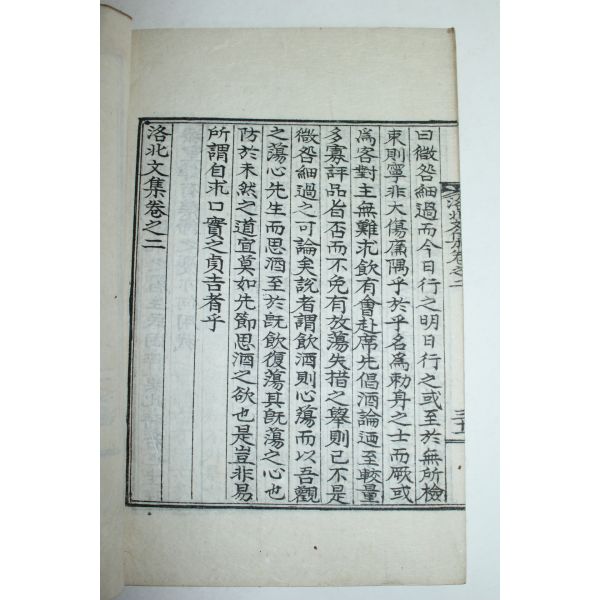 曰微咎細過而今日行之明日行之或至於無所檢
束則寧非大傷廉隅乎於乎名爲勅身之士而厥或
爲客對主無難求飮有會赴席先倡酒論迺至較量
多寡評品旨否而不免有放蕩失措之擧則已不是
微咎細過之可論矣說者謂飮酒則心蕩而以吾觀
之蕩心先生而思酒至於旣飮復蕩其旣蕩之心也
防於未然之道宜莫如先節思酒之欲也是豈非易
所謂自求口實之貞吉者乎
洛北文集卷之二
洛北文集卷之二